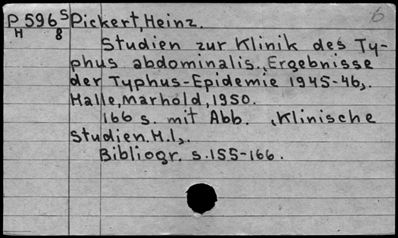 P 596 S Pickert, Heinz. 6
H 8
Studien zur Klinik des Ty-
phus abdominalis.,Ergebnisse
der Typhus-Epidemie 1945-46,.
Halle, Marhold, 1950.
166 s. mit Abb. ,Klinische
Studien. H.1,.
Bibliogr. s.155-166.